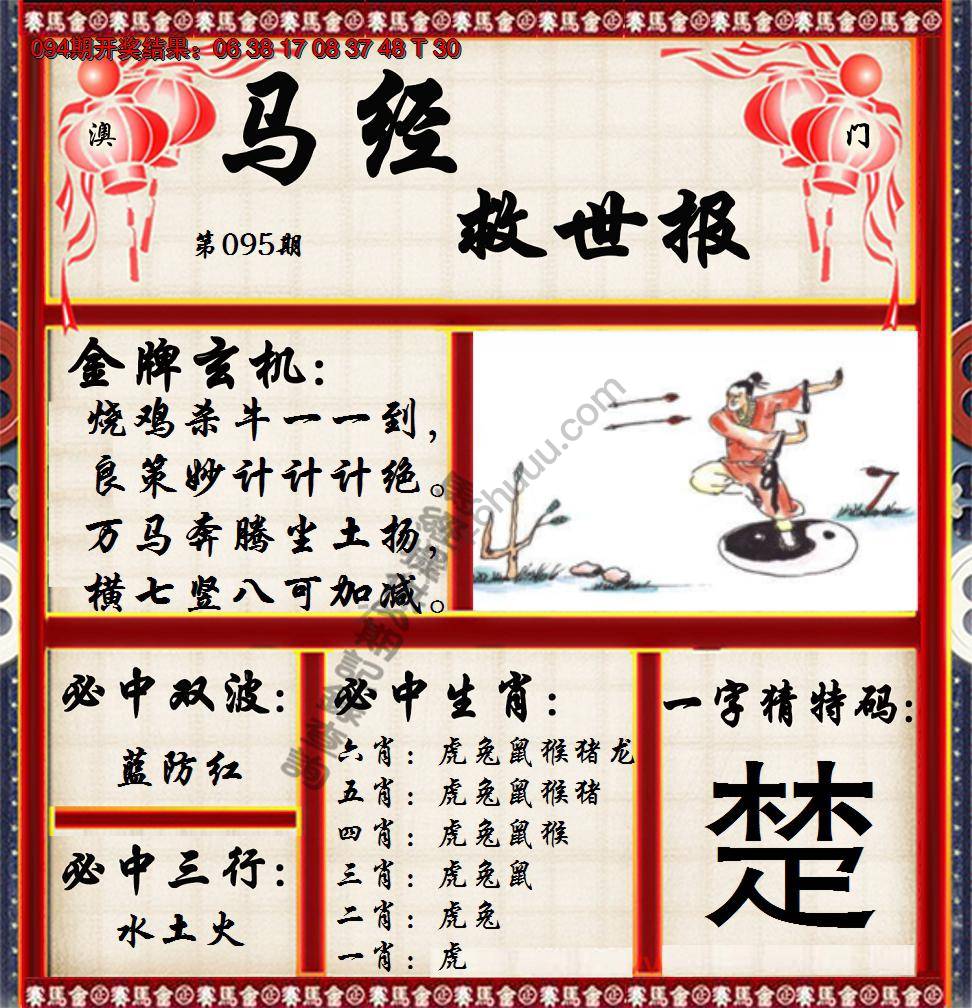 094期开奖结果：06 38 17 08 37 48 T 30
澳
门
马经
救世报
第095期
金牌玄机：
烧鸡杀牛一一到，
良策妙计计计绝。
万马奔腾尘土扬，
横七竖八可加减。
必中双波：
蓝防红
必中三行：
水土火
必中生肖：
六肖：虎兔鼠猴猪龙
五肖：虎兔鼠猴猪
四肖：虎兔鼠猴
三肖：虎兔鼠
二肖：虎兔
一肖：虎
一字猜特码：
楚